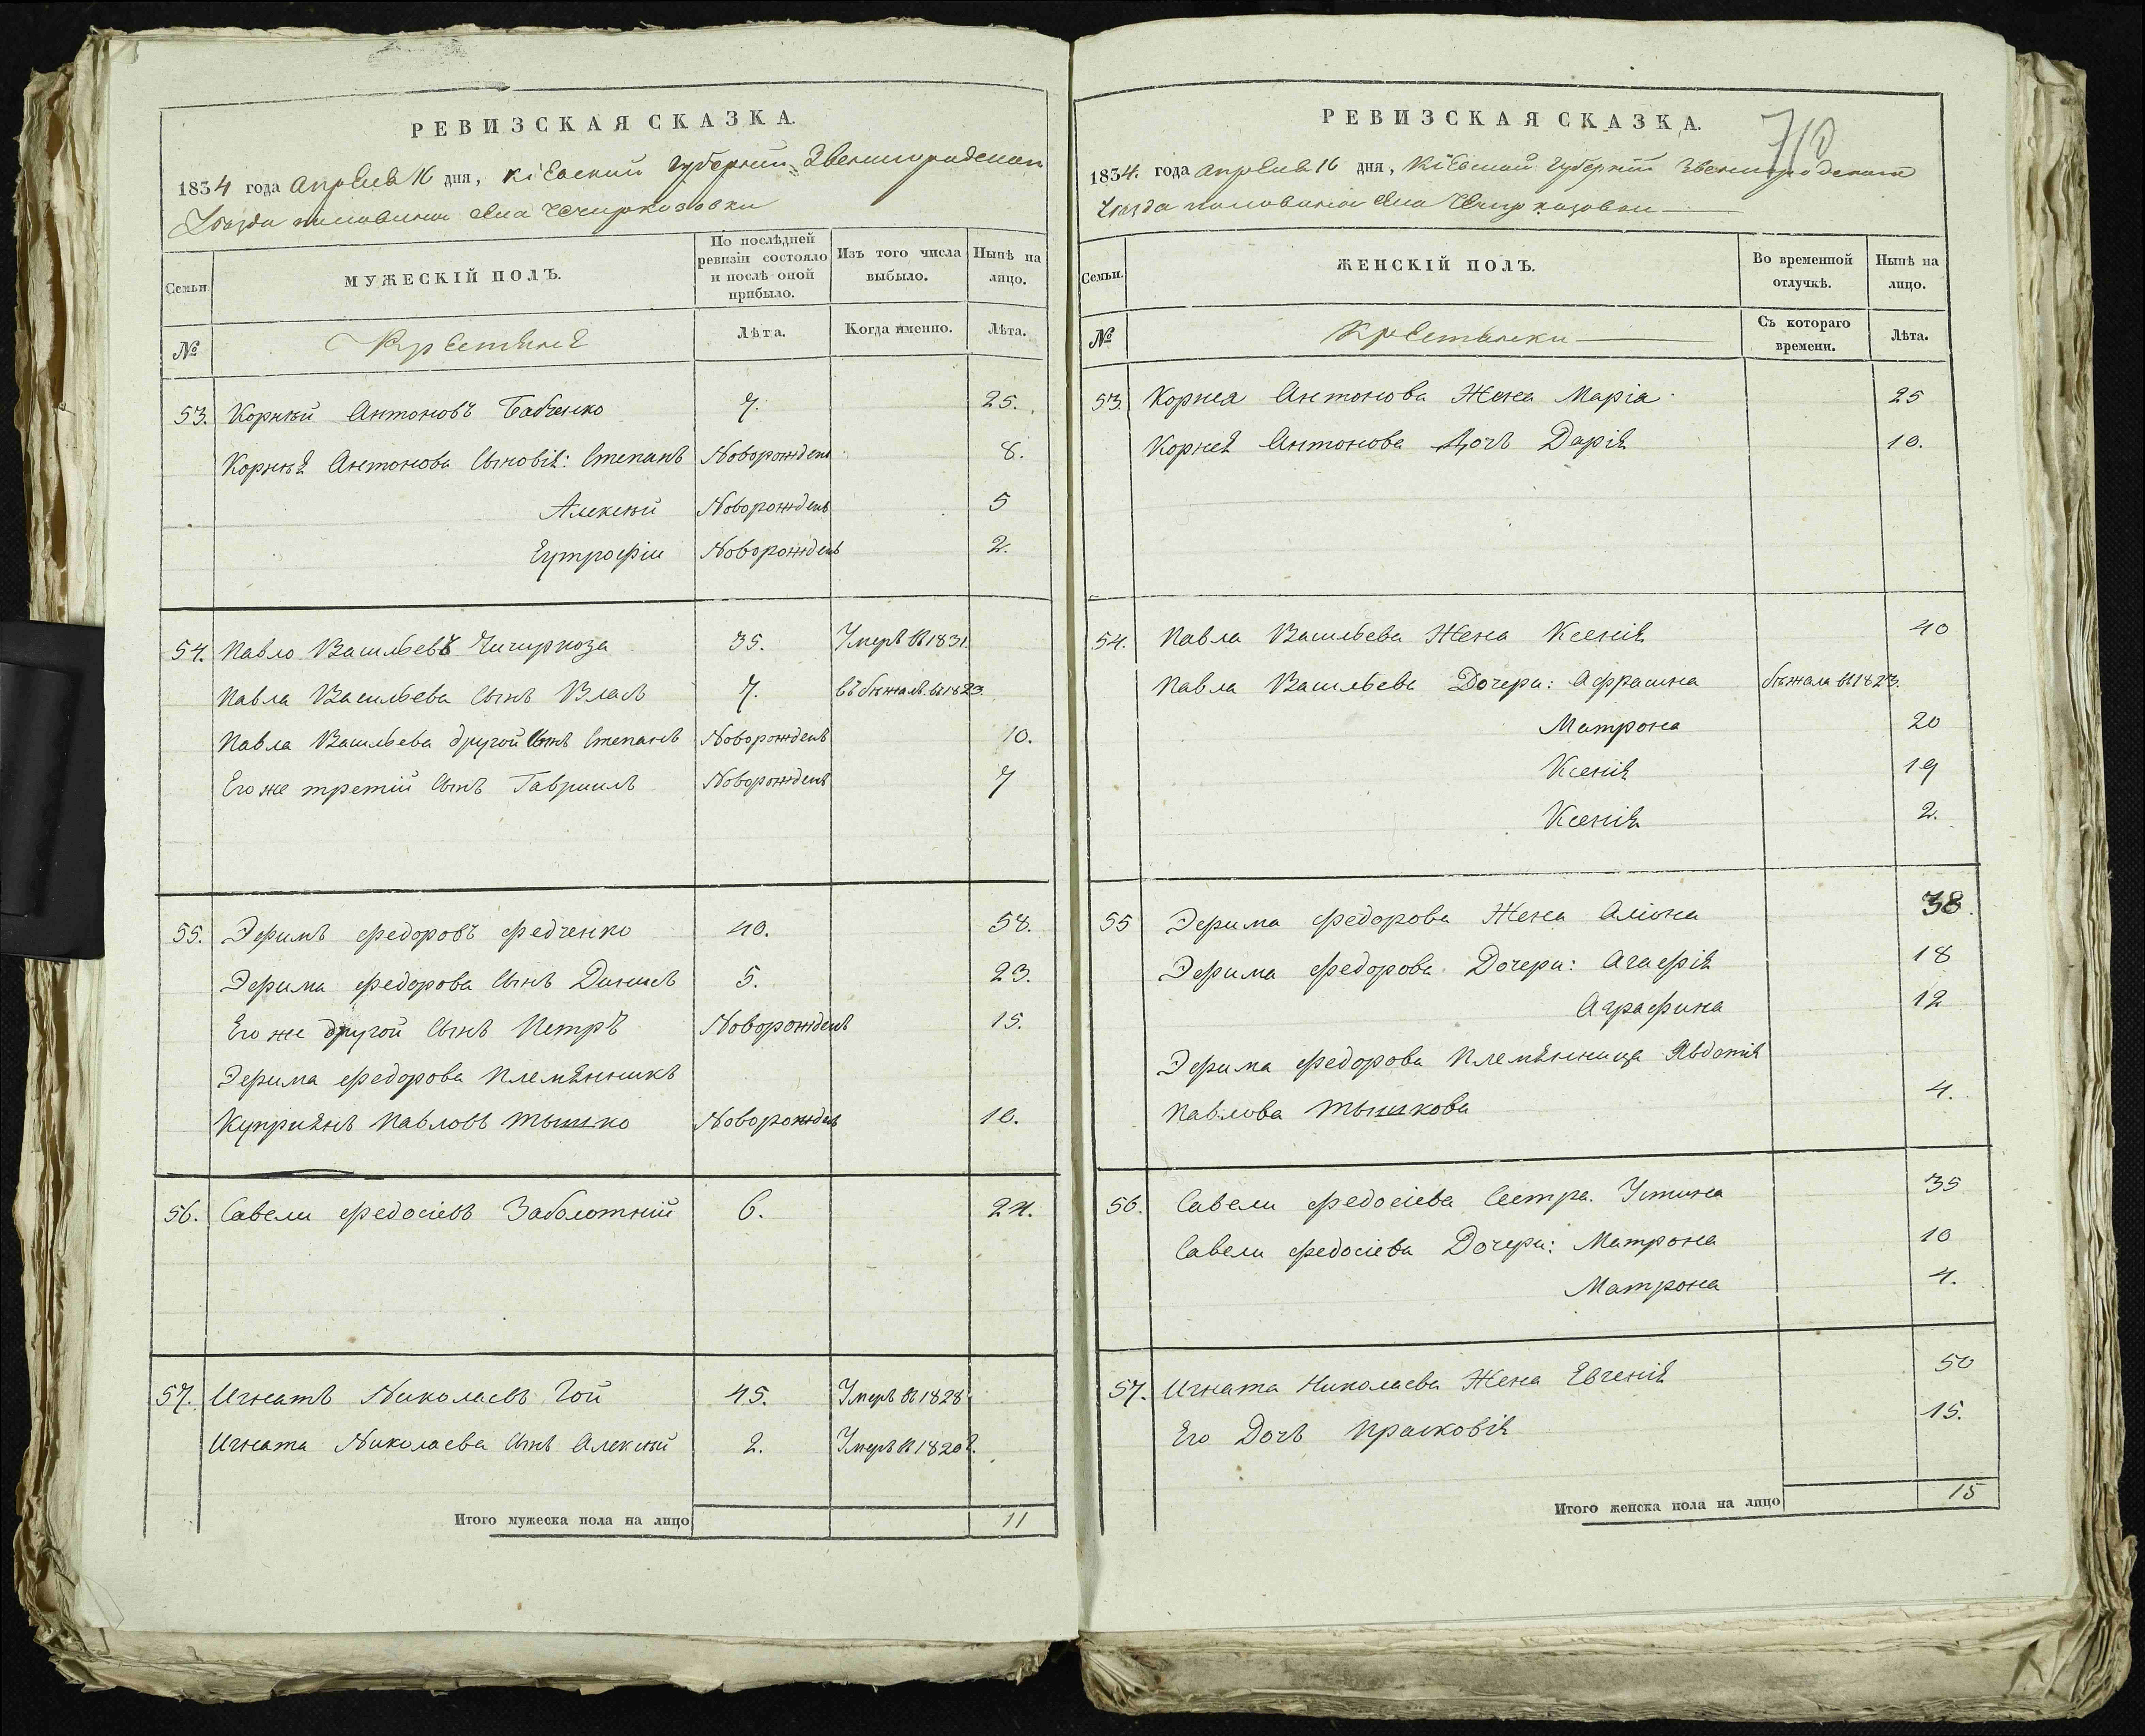 РЕВИЗСКАЯ СКАЗКА.
1834 года апрѣля 16 дня, Кіевской губерніи Звенигородскаго
Уѣзда половины села Чичиркозовки
Семьи
МУЖЕСКІЙ ПОЛЪ.
По послѣдней ревизіи состояло и послѣ оной прибыло.
Изъ того числа выбыло.
Нынѣ на лицо.
№
Крестьяне
Лѣта.
Когда именно.
Лѣта.
53. Корнѣй Антоновъ Бабченко 7. 25.
Корнѣя Антонова Сыновія: Степанъ Новорожденъ 8.
Алексѣй Новорожденъ 5
Евтрофіи Новорожденъ 2.
54. Павло Васильевъ Чичиркоза 35. Умеръ въ 1831.
Павла Васильева Сынъ Власъ 7. въ бѣжалъ въ 1823.
Павла Васильева другой Сынъ Степанъ Новорожденъ 10.
Его же третій Сынъ Гавриилъ Новорожденъ 7
55. Эфимъ Федоровъ Федченко 40. 58.
Эфима Федорова Сынъ Динисъ 5. 23.
Его же другой Сынъ Петръ Новорожденъ 15.
Эфима Федорова Племянникъ
Куприянъ Павловъ Тышко Новорожденъ 10.
56. Савели Федосіевъ Заболотній 6. 24.
57. Игнатъ Николаевъ Гой 45. Умеръ въ 1828
Игната Николаева Сынъ Алексѣй 2. Умеръ въ 1820г.
Итого мужеска пола на лицо 11
РЕВИЗСКАЯ СКАЗКА.
710
1834. года апрѣля 16 дня, Кіевской губерніи Звенигородскаго
Уѣзда половины села Чичиркозовки
Семьи.
ЖЕНСКІЙ ПОЛЪ.
Во временной отлучкѣ.
Нынѣ на лицо.
№
Крестьянки
Съ котораго времени.
Лѣта.
53. Корнея Антонова Жена Марія 25
Корнея Антонова Дочъ Дарія 10.
54. Павла Васильева Жена Ксенія 40
Павла Васильева Дочери: Афрасина бѣжала въ 1823.
Матрона 20
Ксенія 19
Ксенія 2.
55 Эфима Федорова Жена Аліона 38.
Эфима Федорова Дочери: Агафія 18
Аграфина 12
Эфима Федорова Племянница Явдотія
Павлова Тышкова 4.
56. Савели Федосіева Сестра Устина 35
Савели Федосіева Дочери: Матрона 10
Матрона 4.
57. Игната Николаева Жена Евгенія 50
Его Дочъ Прасковія 15.
Итого женска пола на лицо 15